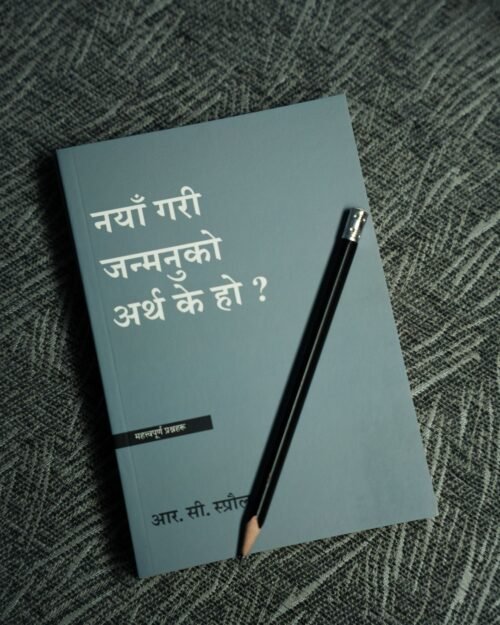 नयाँ गरी
जन्मनुको
अर्थ के हो ?
महत्त्वपूर्ण प्रश्नहरू
आर. सी. स्प्रौल